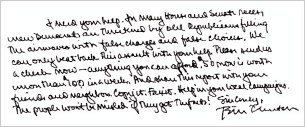 I need your help. In many House and Senate races,
new Democrats are threatened by old Republicans filling
the airwaves with false charges and false choices. We
can only beat back this assault with your help. Please send us
a check now—anything you can afford. $50 now is worth
more than $100 in a week. And share this report with your
friends and neighbors
Help in your local campaigns.
The people won't be misled if they get the facts!
Sincerely,
Bill Clinton